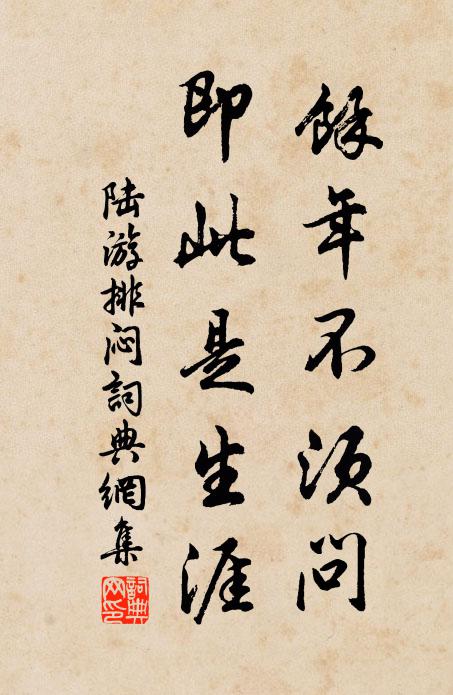 餘年不須問
即此是生涯
陆游排闷詞典網集
詞典网印